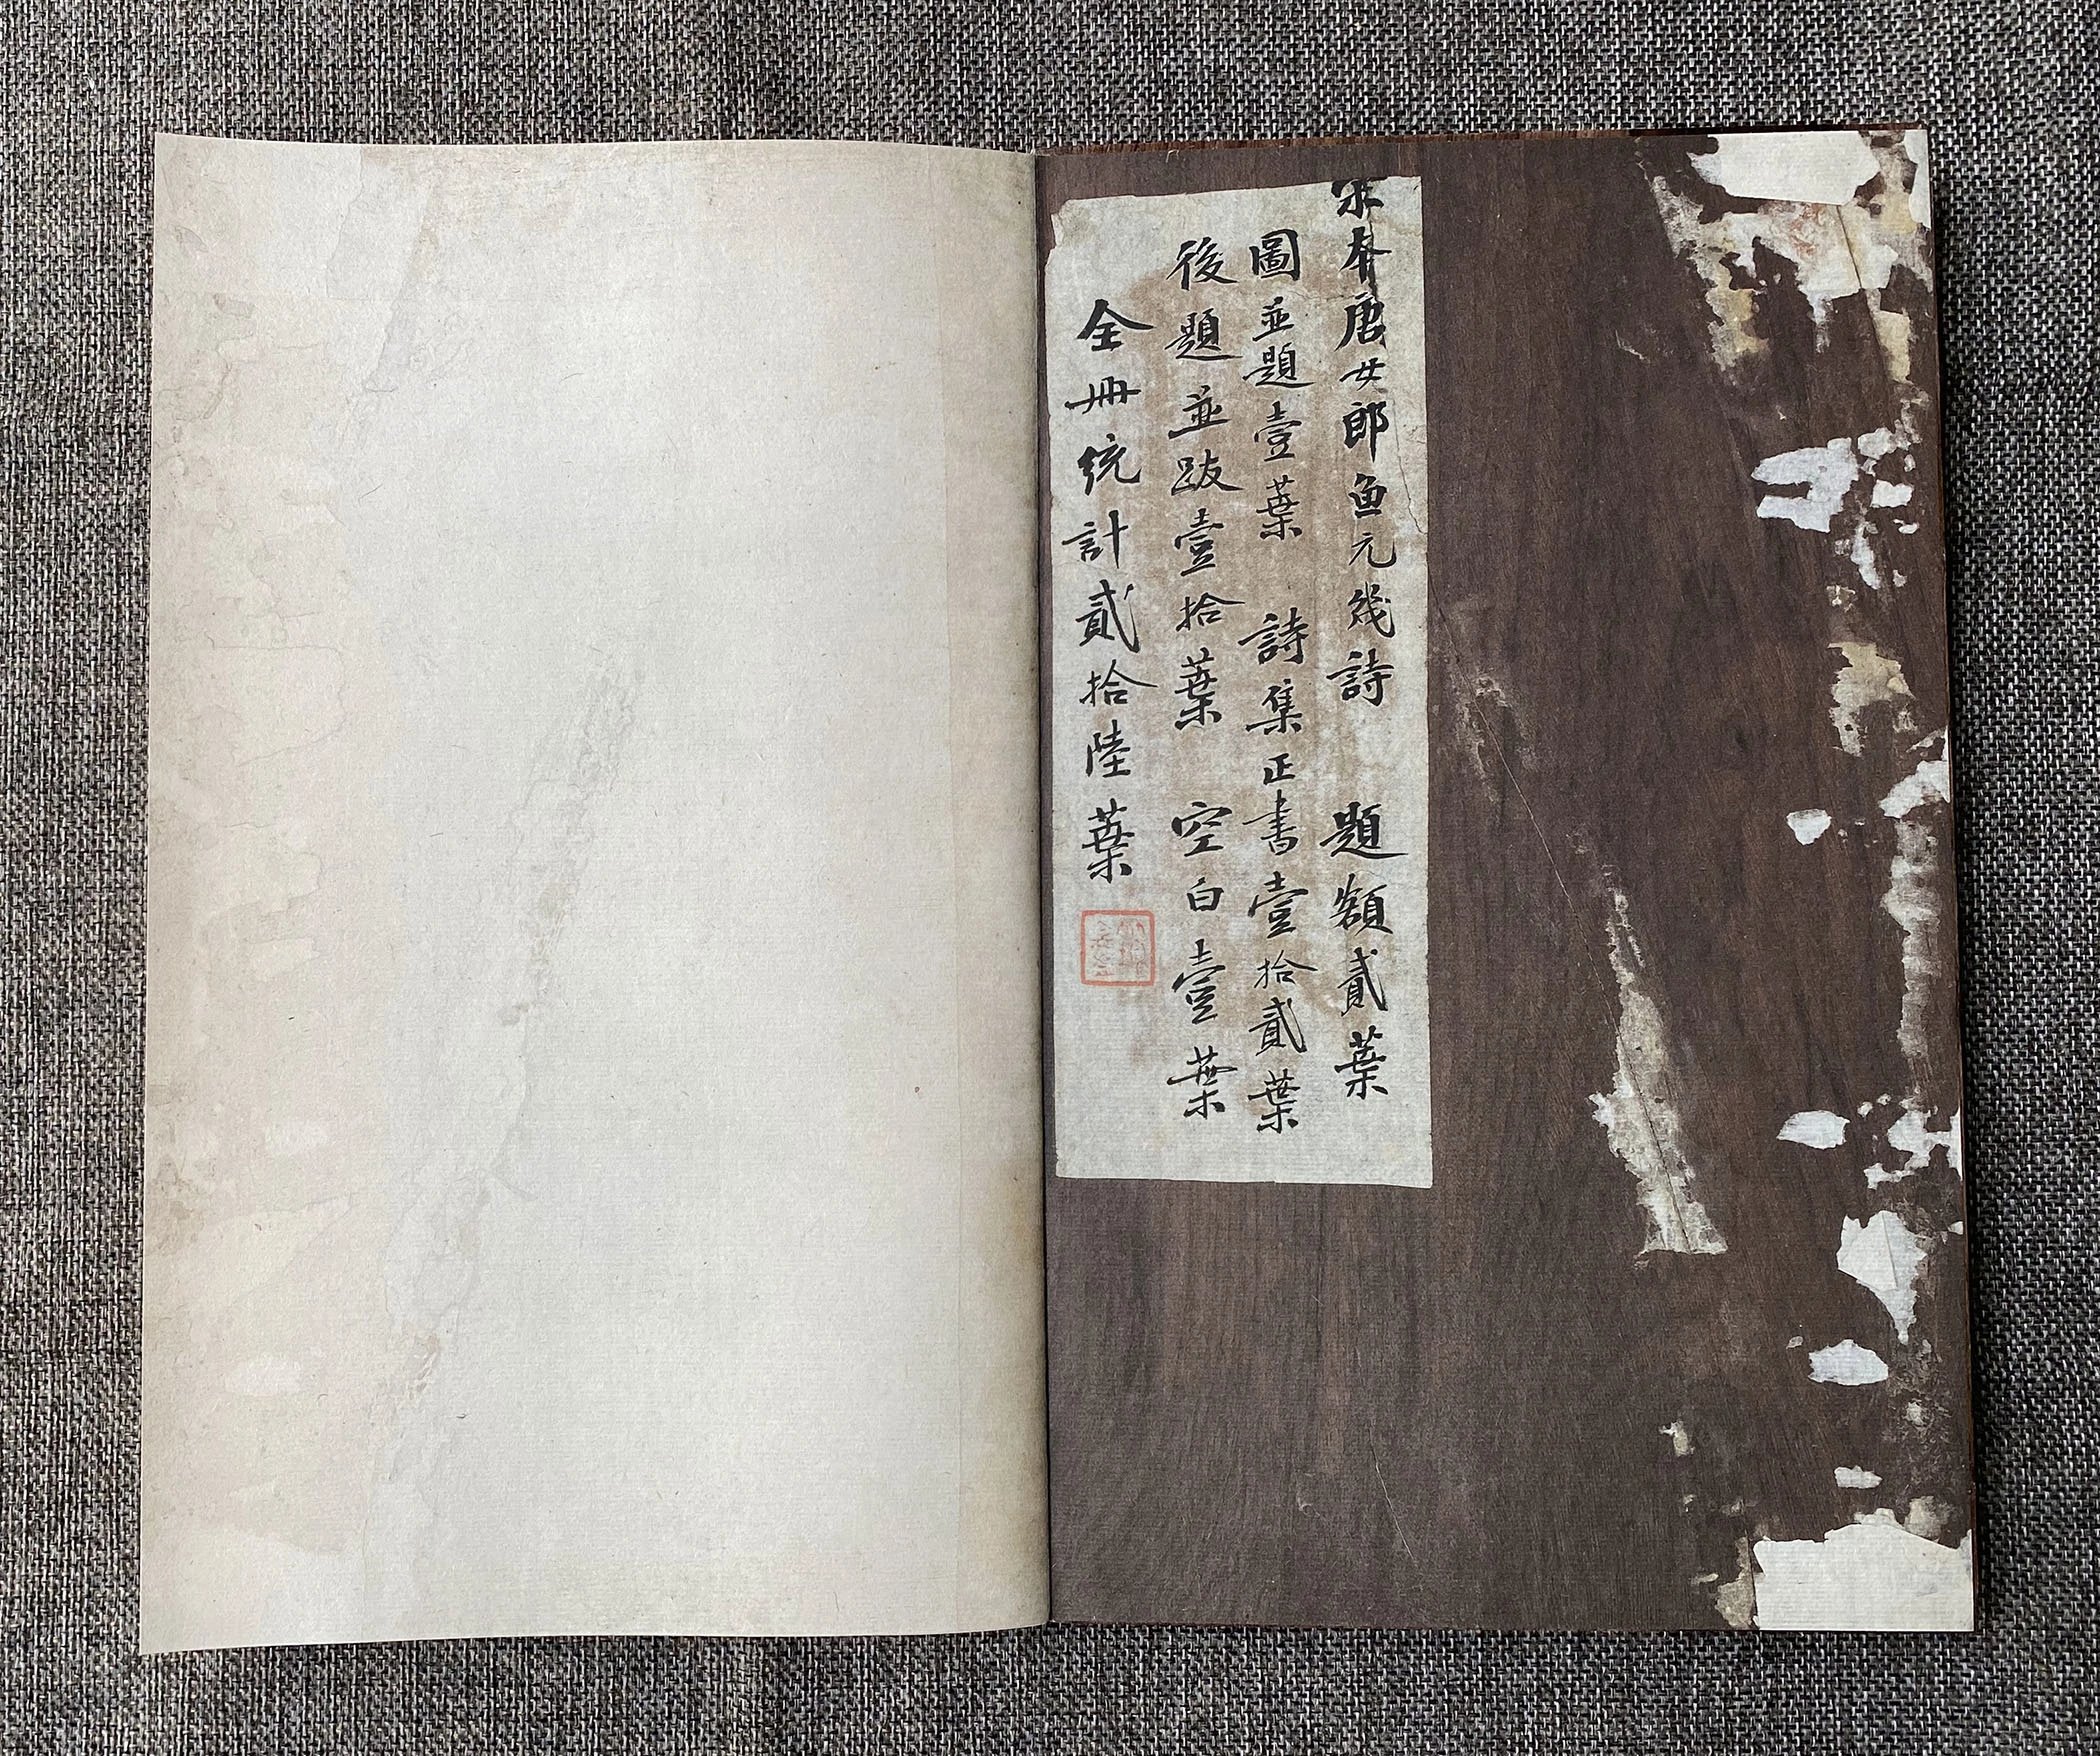 宋本唐女郎魚元幾詩 題額貳葉
圖並題壹葉 詩集正書壹拾貳葉
後題並跋壹拾葉 空白壹葉
全冊統計貳拾陸葉